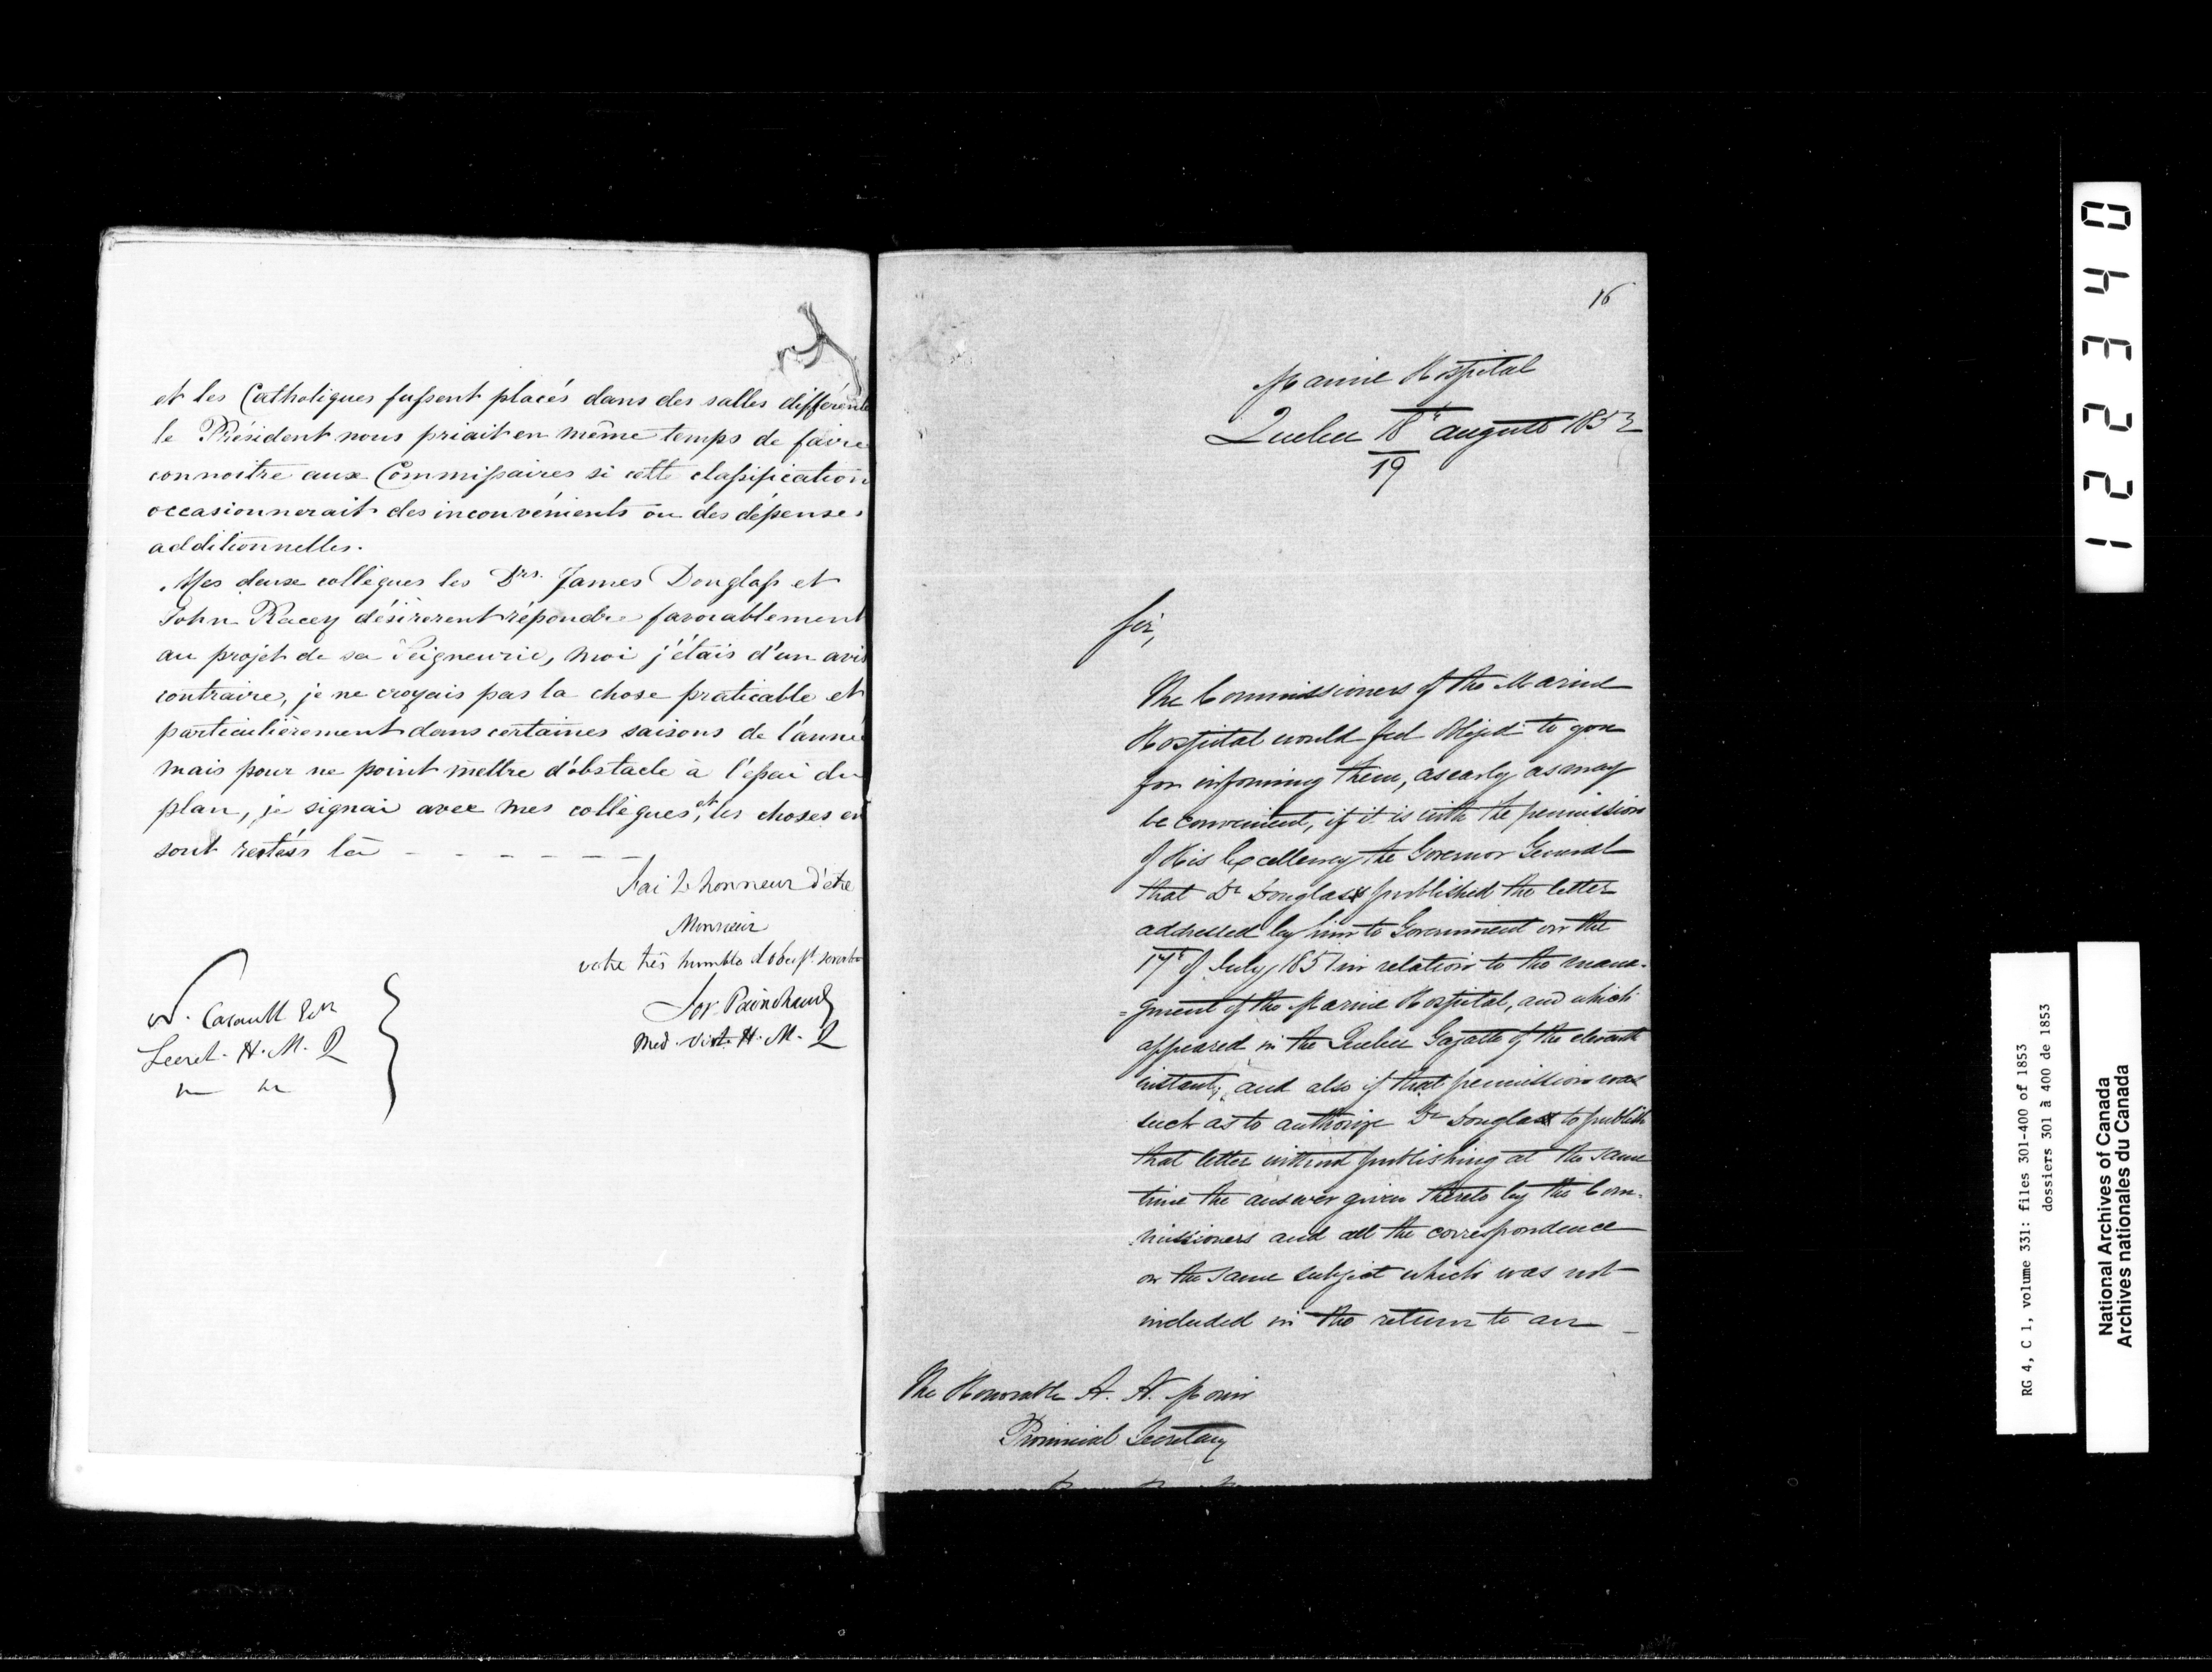 et les Catholiques fussent placés dans des salles différente
le Président nous priait en même temps de faire
connoître aux Commissaires si cette classification
occasionnerait des inconvénients ou des dépenses
additionnelles.
Mes deux collègues les Drs. James Douglass et
John Racey désirèrent répondre favorablement
au projet de sa Seigneurie, moi j'étais d'un avis
contraire, je ne croyais pas la chose praticable et
particulièrement dans certaines saisons de l'anné
mais pour ne point mettre d'obstacle à l'essai du
plan, je signai avec mes collègues, et les choses en
sont restées là - - - - - -
J'ai l'honneur d'être
Monsieur
votre très humble
Jos. Painchaud
Med. Visit. H. M. Q
N. Casault
Secret. H. M. Q
16
Marine Hospital
Quebec 18th august 1853
19
Sir,
The Commissioners of the Marine
Hospital would feel obliged to you
for informing them, as early as may
be convenient, if it is with the permission
of His Excellency the Governor General
that Dr Douglass published the letter
addressed by him to Government on the
17th of July 1851 in relation to the mana-
=gment of the Marine Hospital, and which
appeared in the Quebec Gazette of the eleventh
instant; and also if that permission was
such as to authorize Dr Douglass to publish
that letter without publishing at the same
time the answer given thereto by the Com-
missioners and all the correspondence
on the same subject which was not
included in the return to an
The Honorable A. N. Morin
Provincial Secretary
1 2 2 3 4 0
RG 4, C 1, volume 331: files 301-400 of 1853
dossiers 301 à 400 de 1853
National Archives of Canada
Archives nationales du Canada